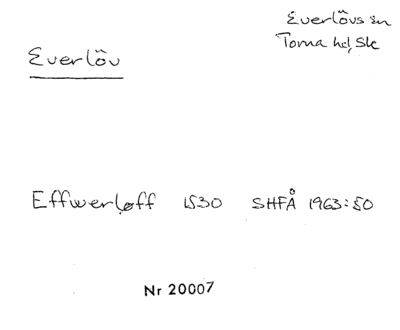 Everlövs sn
Torna hd, Sk
Everlöv
Effwerløff 1530 SHFÅ 1963:50
Nr 20007